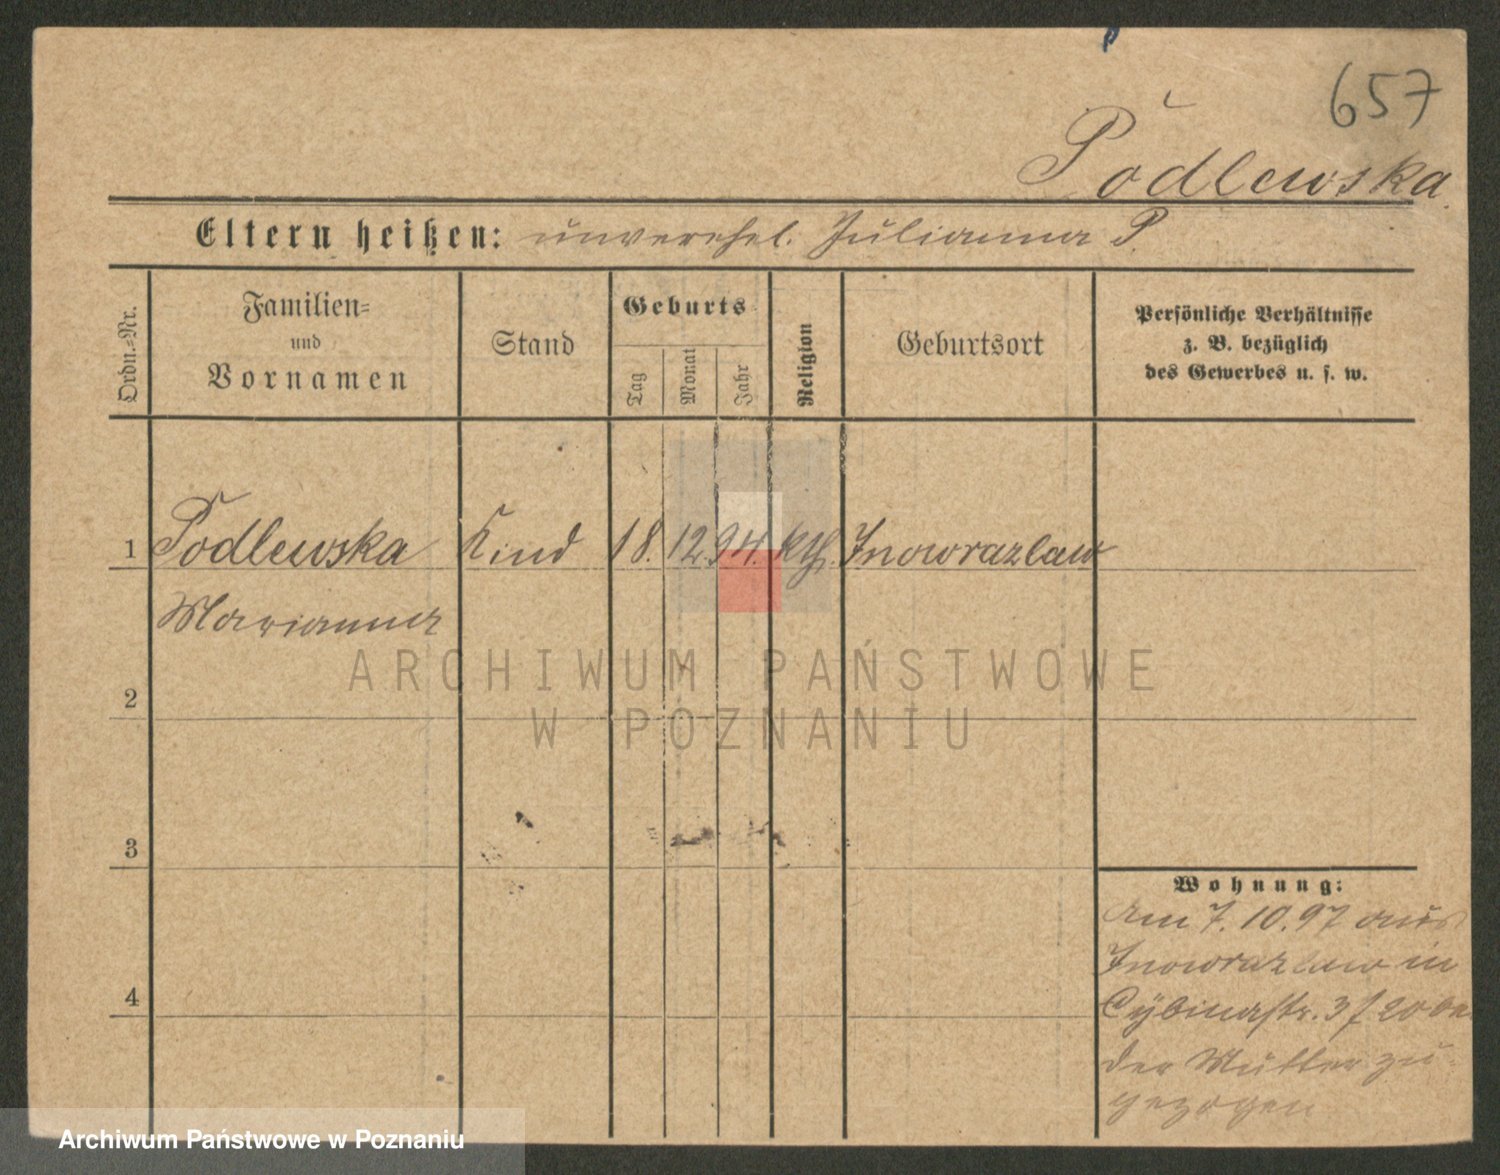 657
Podlewska.
Eltern heißen: unverehel. Julianna P.
Ordn.-Nr.
Familien-
und
Vornamen
Stand
Geburts
Tag
Monat
Jahr
Religion
Geburtsort
Persönliche Verhältnisse
z. B. bezüglich
des Gewerbes u. s. w.
1 Podlewska Kind 18. 12. 94. kth. Inowrazlaw
Marianna
ARCHIWUM PAŃSTWOWE
W POZNANIU
2
3
4
Wohnung:
Am 7.10.97 aus
Inowrazlaw in
Cybinastr. 3 f 20 bei
der Mutter zu-
gezogen
Archiwum Państwowe w Poznaniu